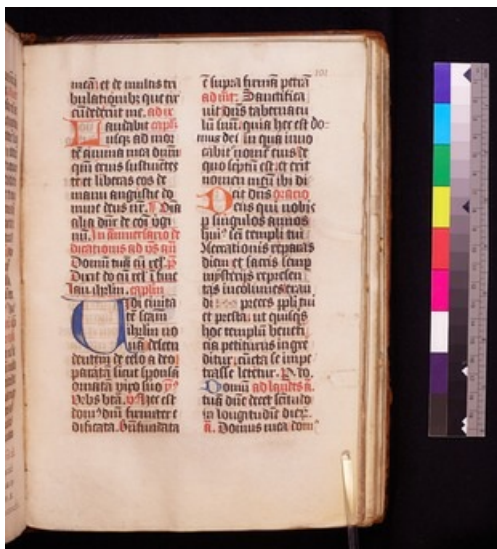 meā; et de multis tri
bulationibꝫ que cir
cūdederūt me. ad ix
Laudabit
usqꝫ ad mor
tē anima mea dūm
qm̄ eruis sustinētes
te et liberas eos de
manu angustie do
mine deus nr̄.
alia
In
dedicationis ad
Domum tuā
Vidi civita
tē sc̄am
ihrlm̄ no
vā descen
dentem de celo a deo
paratā sicut sponsā
ornatā viro suo
Vrbs btā. Hec est
domꝰ dn̄i firmiter e
dificata. Bn̄ fundata
101
ē supra firmā petrā
Sanctifica
vit dn̄s tabernacu
lū suū. quia hec est do-
mus dei in qua invo
cabit nomē eius de
quo scptū est. et erit
nomen meū ibi di
cit dn̄s oratio
Deus qui nobis
p singulos annos
huiꝰ sc̄i templi tui
cōsecrationis reparas
diem et sacris semp
mysterijs represen
tas incolumes exau
di preces ppli tui
et presta. ut quisqs
hoc templū benefi
cia petiturus ingre
ditur. cūcta se impe
trasse letetur. P. do.
Domū ad laudes a.
tuā dn̄e decet sc̄itudo
in longitudīe dierꝫ.
a. Domus mea domꝰ